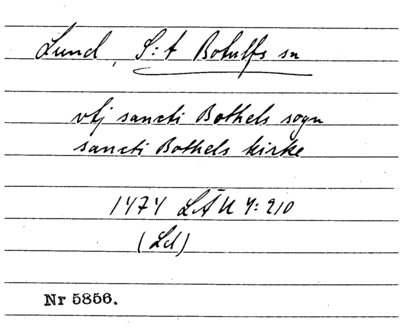 Lund, S:t Botulfs sn
vtj sancti Bothels sogn
sancti Bothels kirke
1474 LÄU 4:210
(Ld)
Nr 5856.